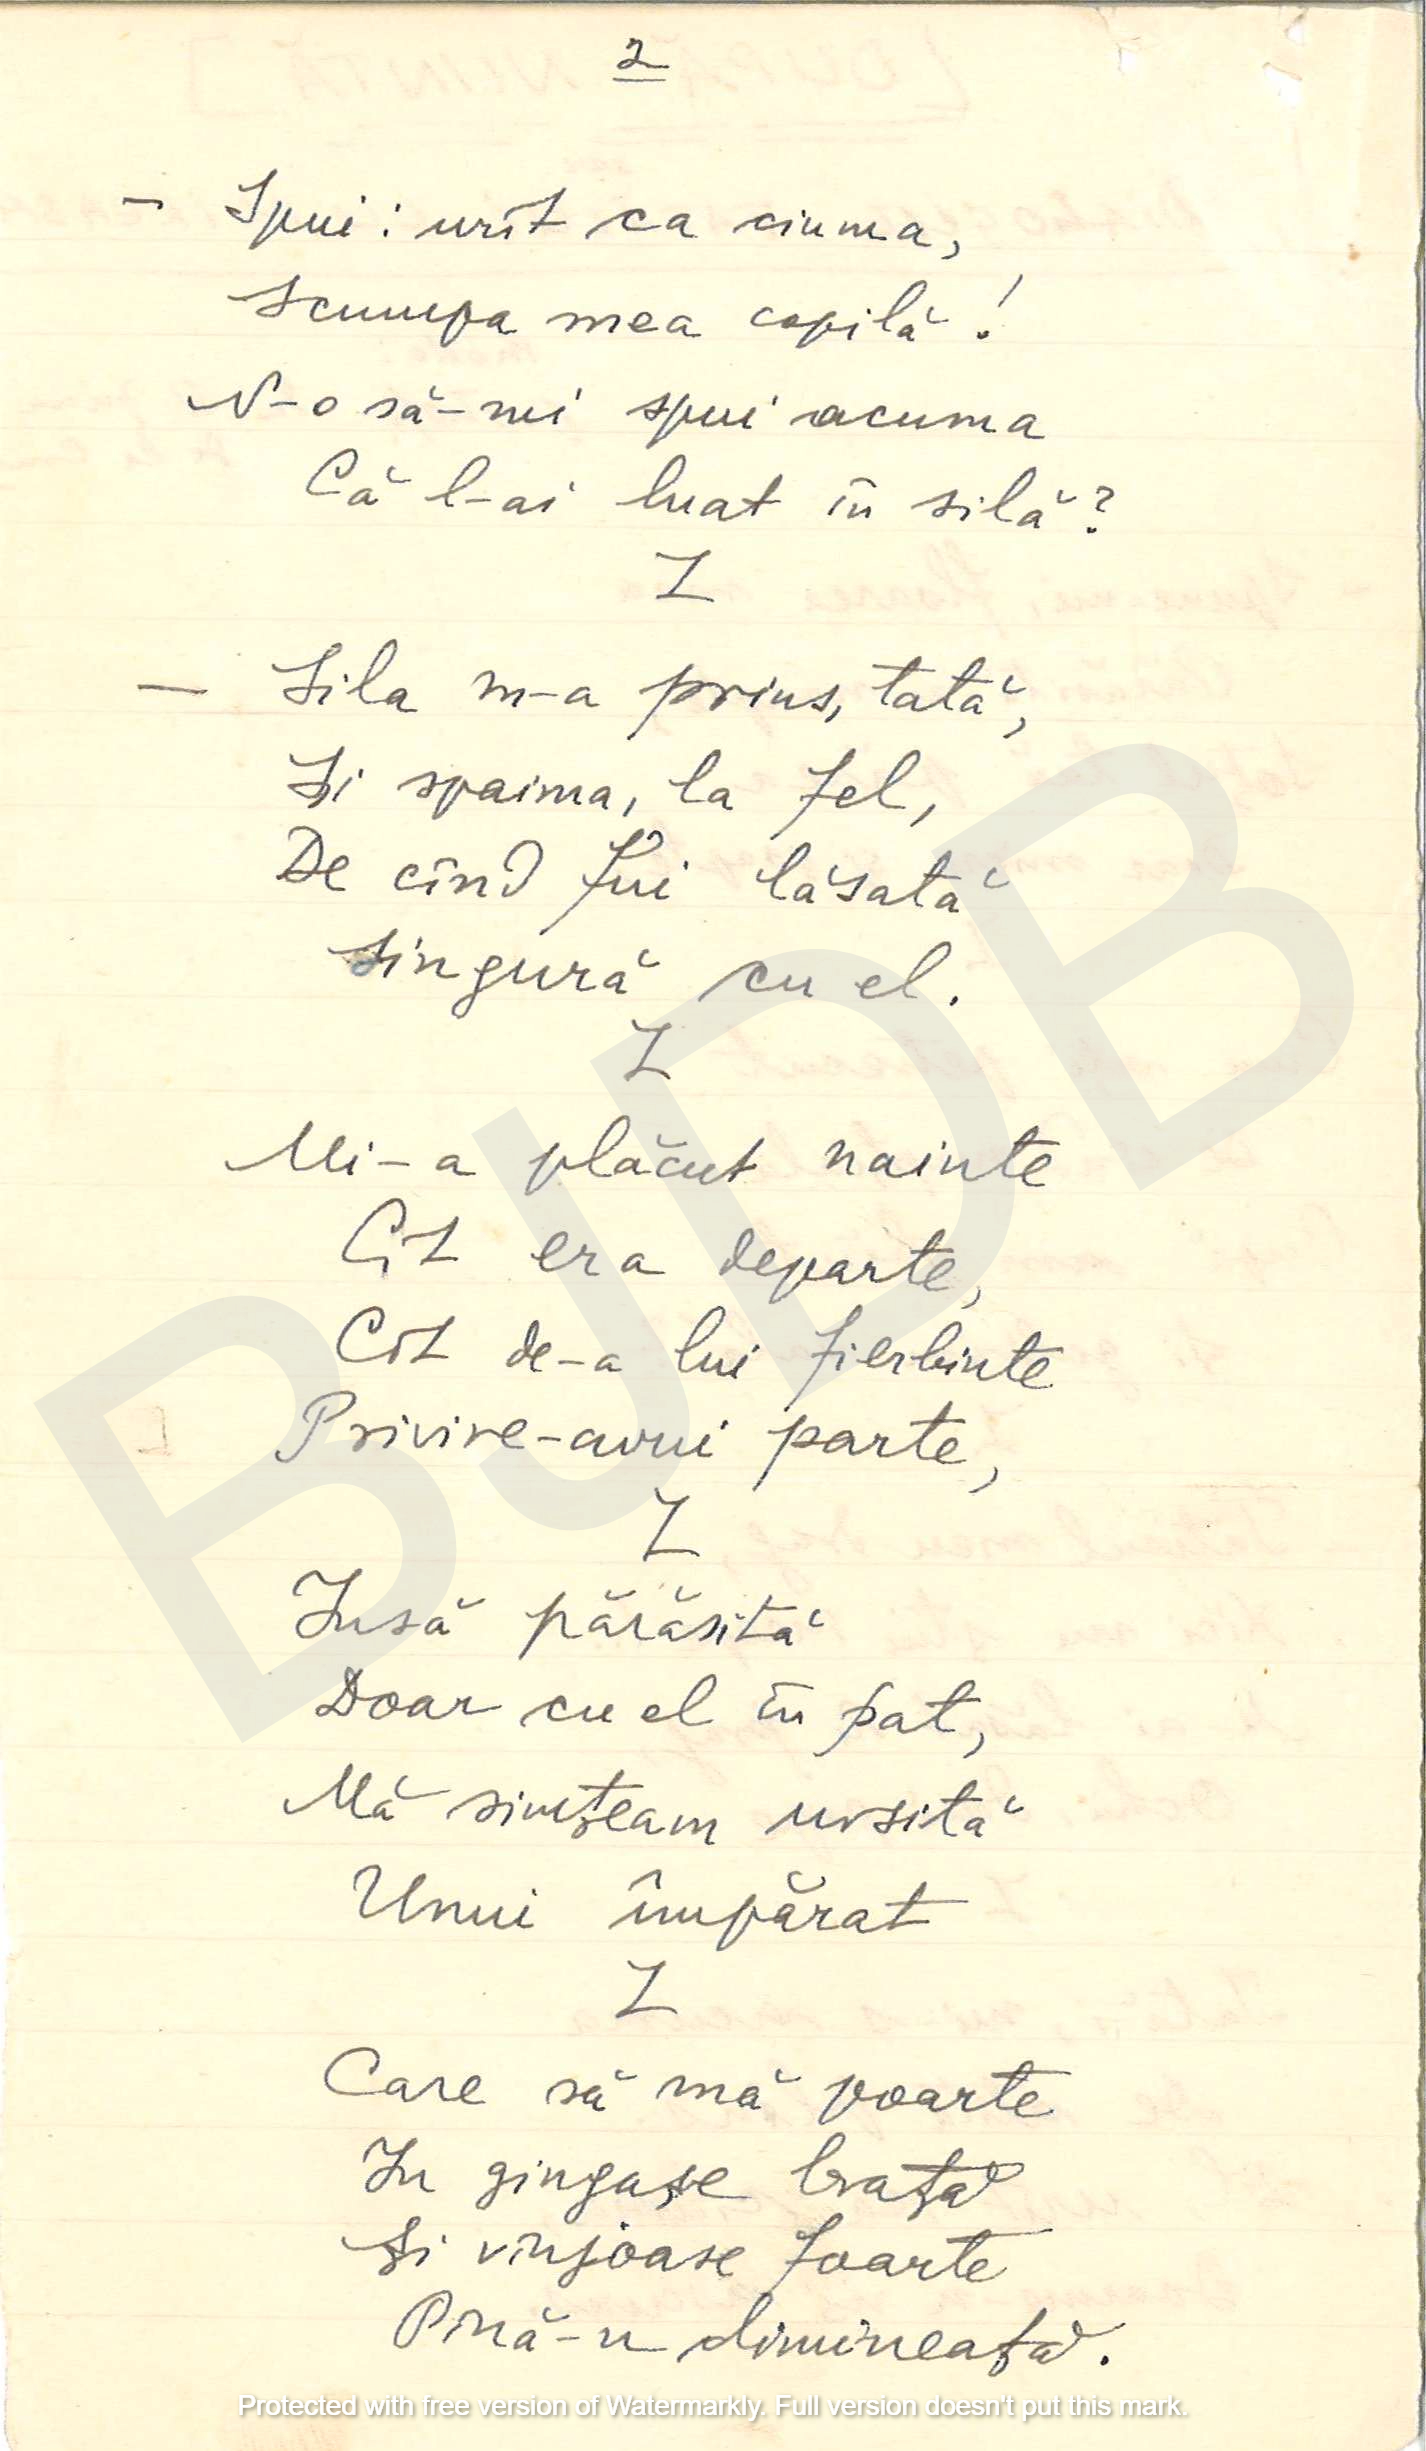 2
— Spui: urît ca ciuma,
Scumpa mea copilă!
N-o să-mi spui acuma
Că l-ai luat în silă?
— Sila m-a prins, tată,
Și spaima, la fel,
De cînd fui lăsată
Singură cu el.
Mi-a plăcut nainte
Cît era departe,
Cît de-a lui fierbinte
Privire-avui parte,
Însă părăsită
Doar cu el în pat,
Mă simțeam ursită
Unui împărat
Care să mă poarte
In gingașe brață
Și vînjoase foarte
Pînă-n dimineață.
BJDB
Protected with free version of Watermarkly. Full version doesn't put this mark.